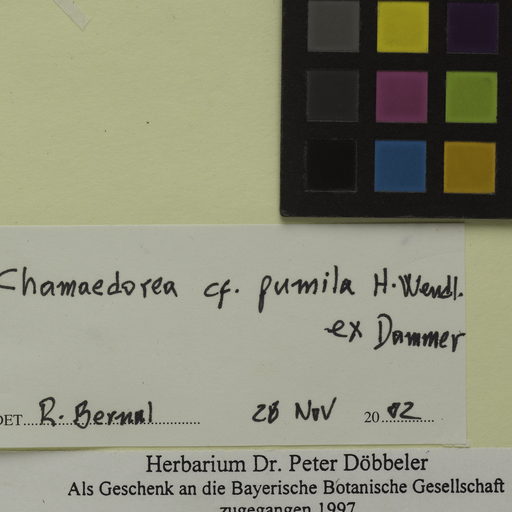 Chamaedorea cf. pumila H. Wendl.
ex Dammer
DET. R. Bernal 28 NOV 2002
Herbarium Dr. Peter Döbbeler
Als Geschenk an die Bayerische Botanische Gesellschaft
zugegangen 1997